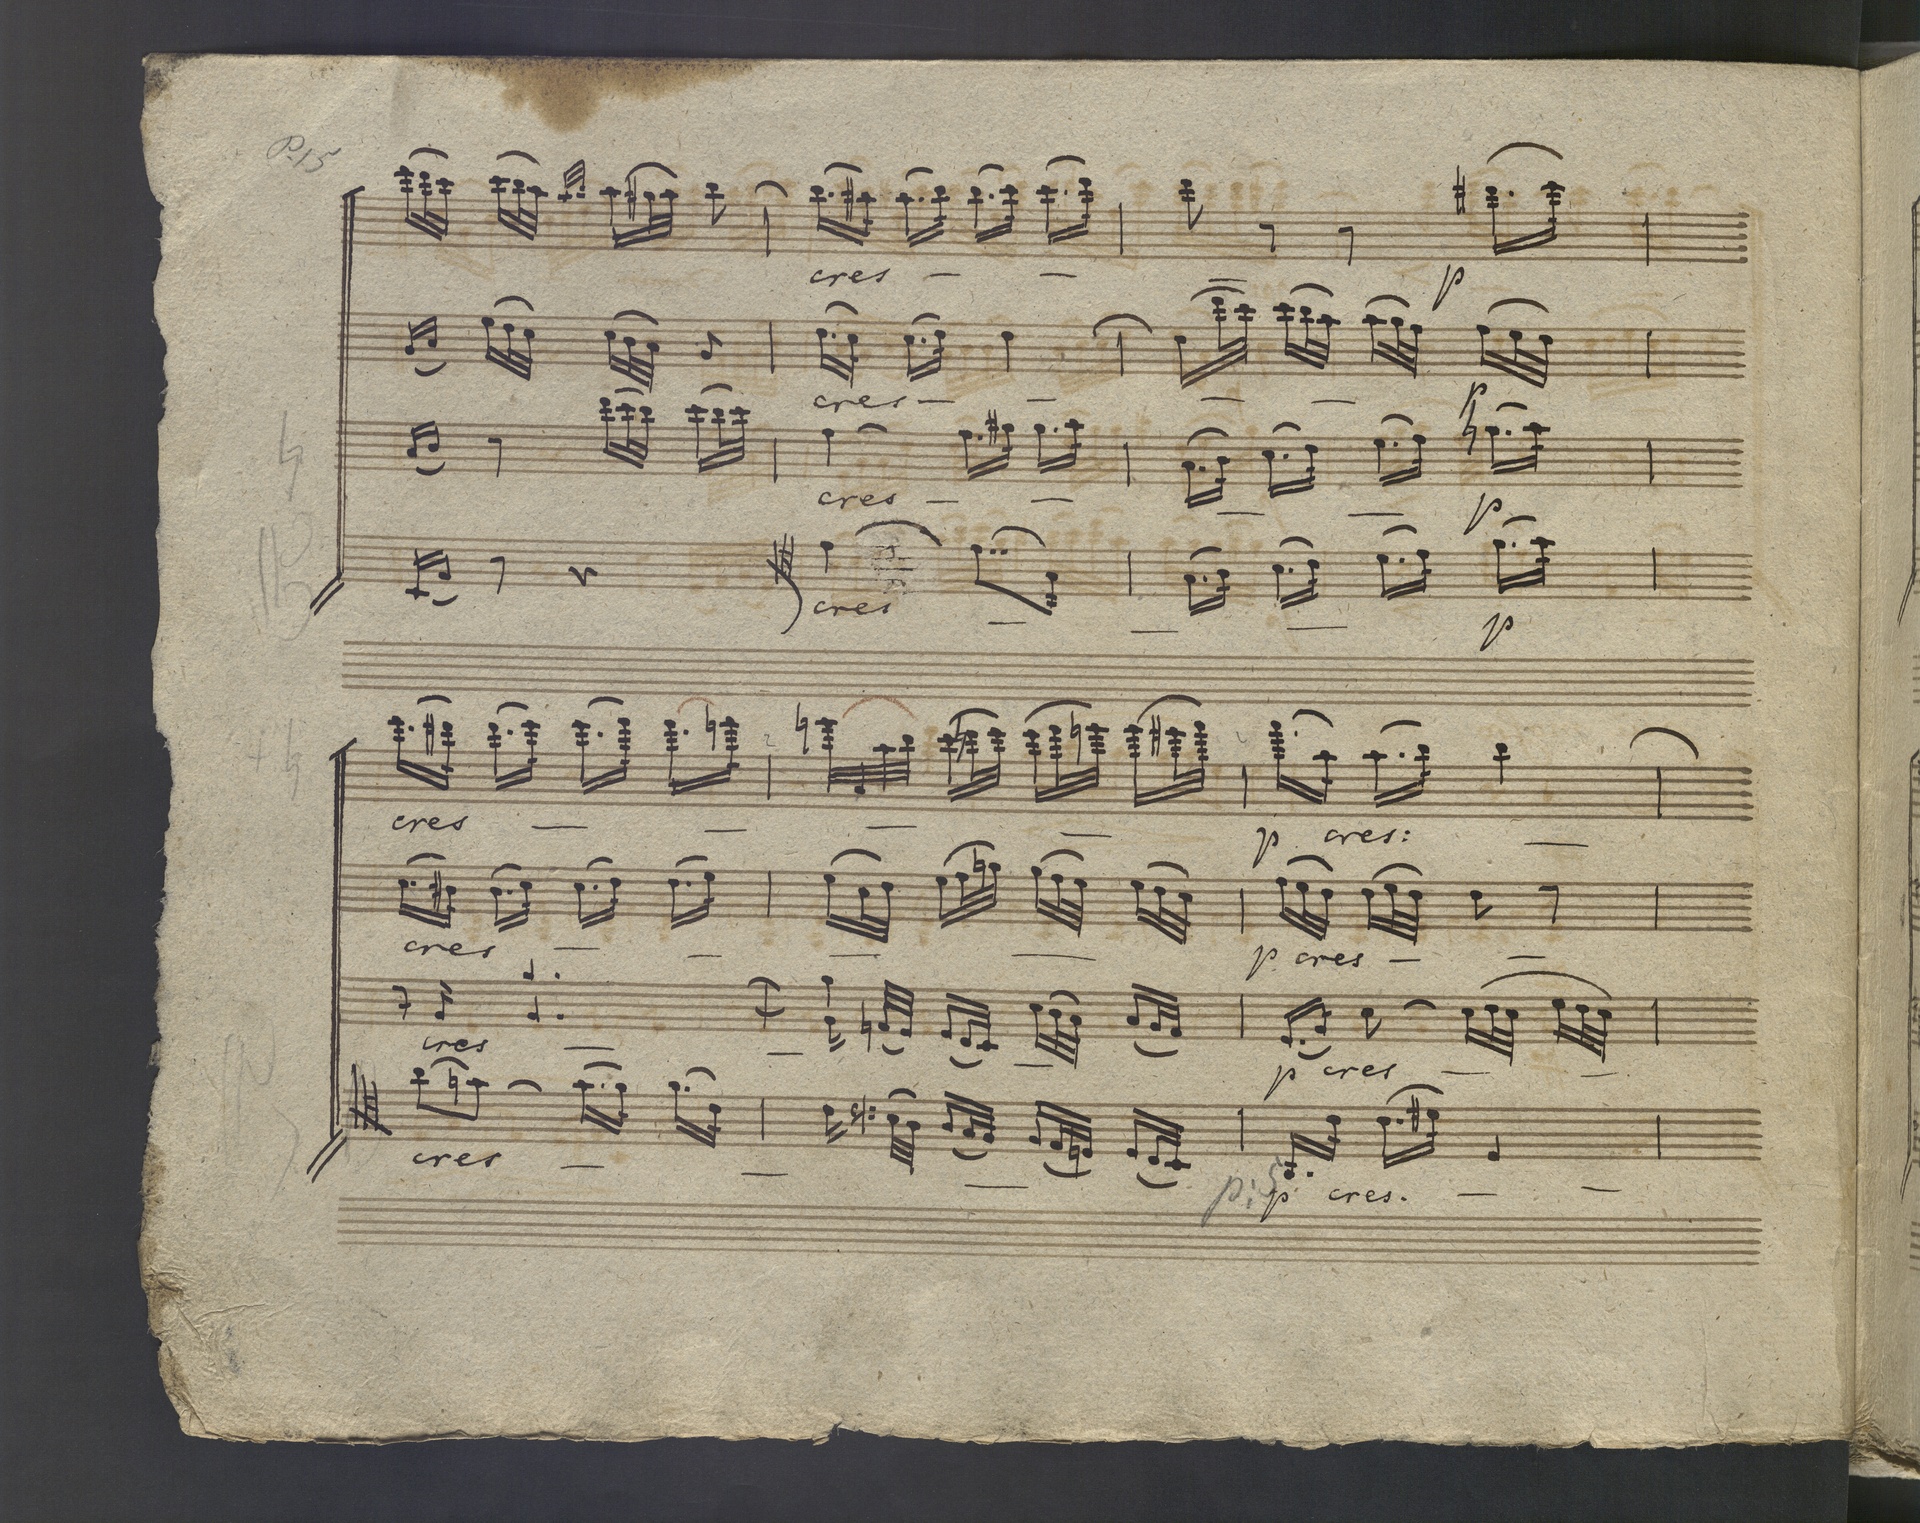 P. 15
cres – –
p
cres – – – –
p
cres – – – –
p
cres – – –
p
cres – – – –
p cres: –
cres – – – –
p cres – –
cres – – –
p cres – –
cres – – –
p cres. – –